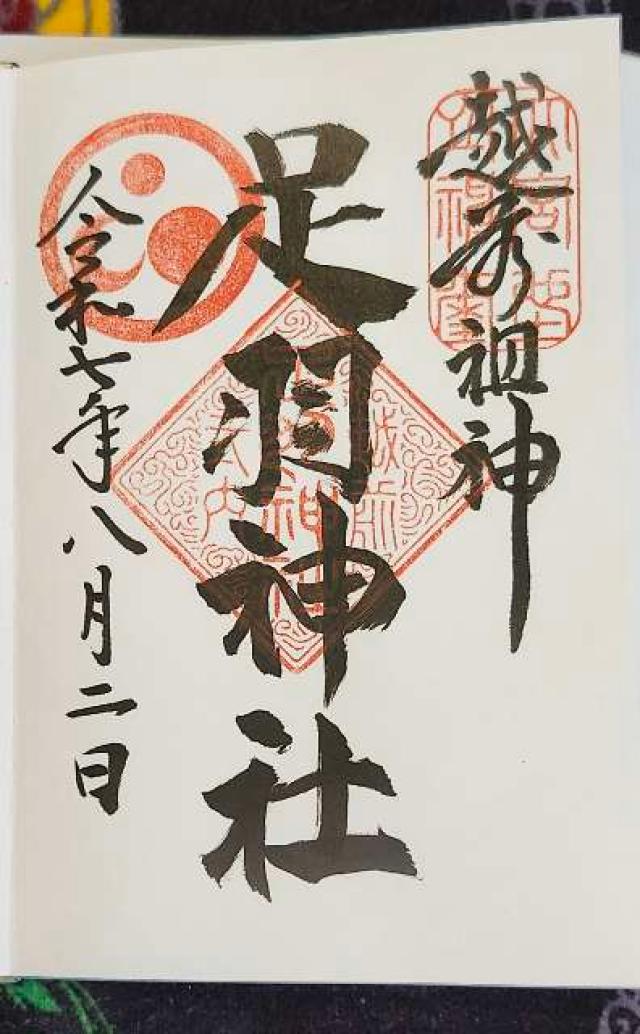 越前祖神
足羽神社
令和七年八月二日